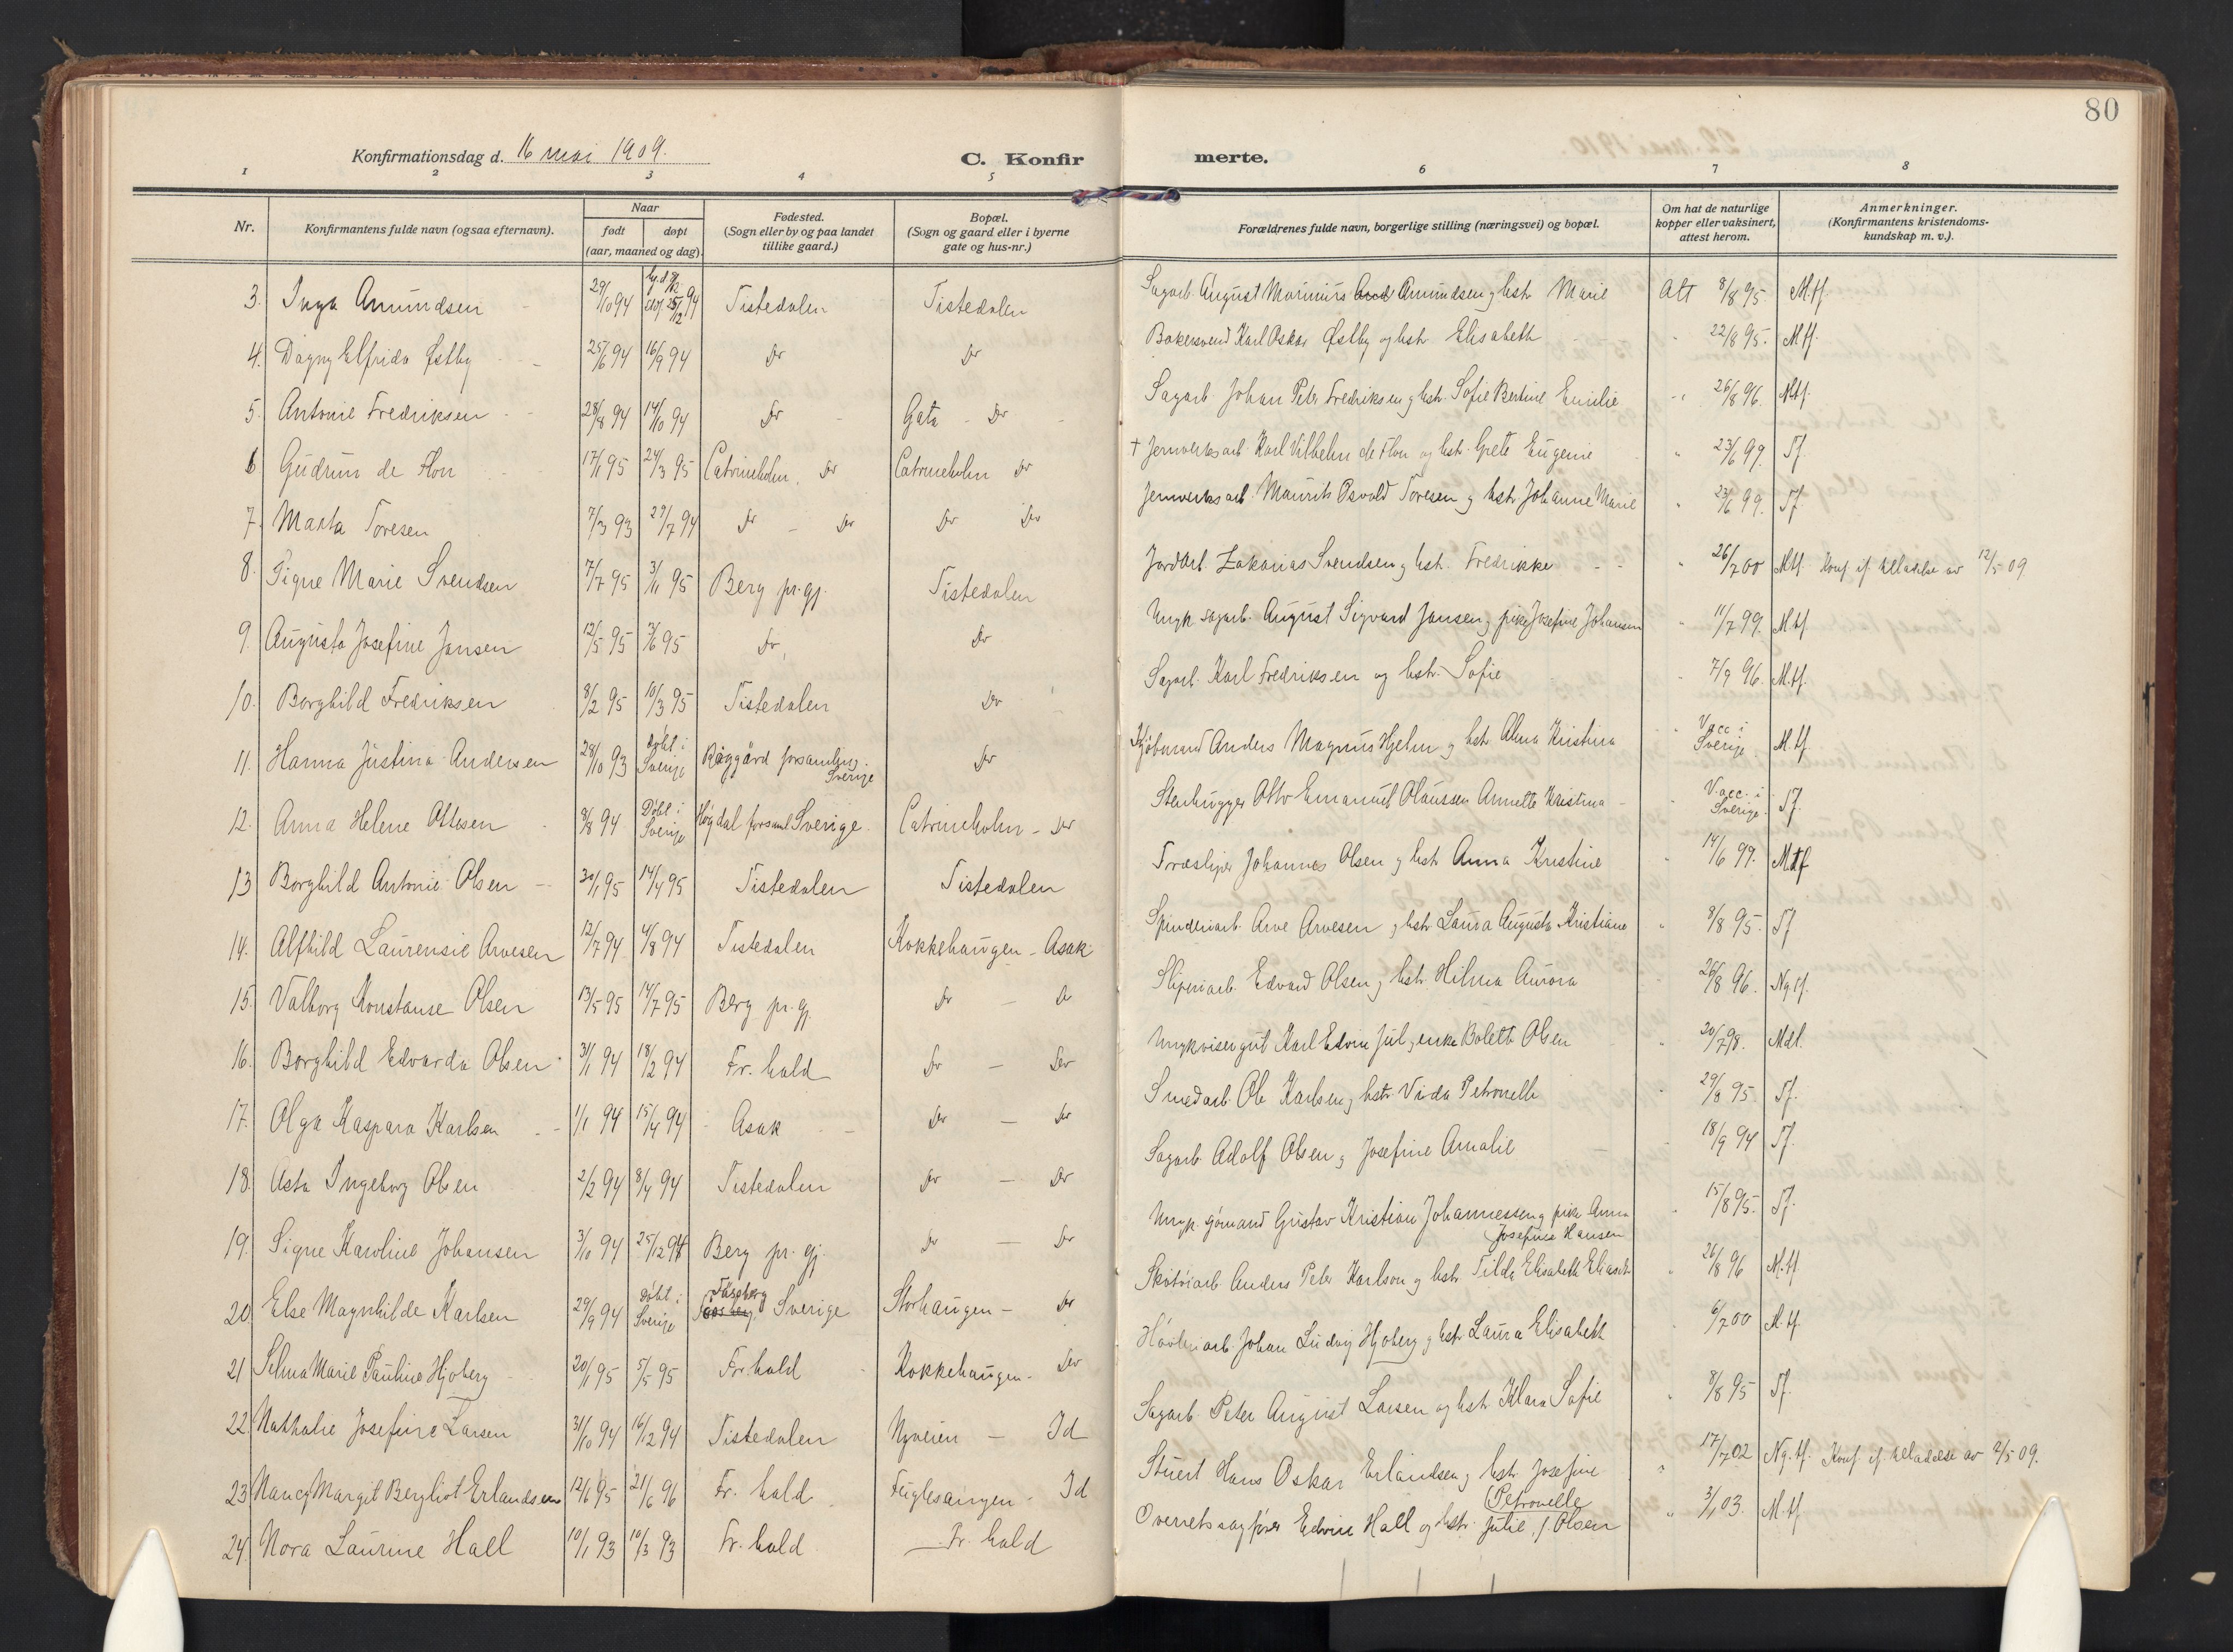 80
Konfirmationsdag d. 16 mai 1909.
C. Konfirmerte.
1 2 3 4 5 6 7 8
Nr.
Konfirmantens fulde navn (ogsaa efternavn).
Naar
født
døpt
(aar, maaned og dag).
Fødested.
(Sogn eller by og paa landet
tillike gaard.)
Bopæl.
(Sogn og gaard eller i byerne
gate og hus-nr.)
Forældrenes fulde navn, borgerlige stilling (næringsvei) og bopæl.
Om hat de naturlige
kopper eller vaksinert,
attest herom.
Anmerkninger.
(Konfirmantens kristendoms-
kundskap m. v.).
3. Inga Amundsen 29/10 94 25/12 94 Tistedalen Tistedalen Sagarb. August Marinius Amundsen og hstr Marie Att 8/8 95 M.tf.
4. Dagny Elfrida Østby 25/6 94 16/9 94 Do Do Bakersvend Karl Oskar Østby og hstr Elisabeth " 22/8 95. Mtf.
5. Antonie Fredriksen 28/8 94 14/10 94 Do Gata - Do Sagarb Johan Peter Fredriksen og hstr. Sofie Bertine Emilie " 26/8 96. Mtf.
6 Gudrun de Flon 17/1 95 24/3 95 Catrineholm, Do Catrineholm Do † Jernverksarb. Karl Vilhelm de Flon og hstr. Grete Eugenie " 23/6 99. Tf.
7. Marta Toresen 7/3 93 29/7 94 Do - Do Do Do Jernverksarb. Maurits Osvald Toresen og hstr Johanne Marie " 23/6 99. Tf.
8. Signe Marie Svendsen 7/7 95 3/11 95 Berg pr.gj. Tistedalen Jordarb. Zakarias Svendsen og hstr. Fredrikke " 26/7 00 Mtf. Konf. if. tilladelse av 12/5 09
9. Augusta Josefine Jansen 12/5 95 95 Do Do Ungk. sagarb. August Sigvard Jansen og pike Josefine Johansen " 11/7 99. Mtf.
10. Borghild Fredriksen 8/2 95 10/3 95 Tistedalen Do Sagarb. Karl Fredriksen og hstr. Sofie " 7/9 96. M.tf.
11. Hanna Justina Andersen 28/10 93 Døbt i Sverige Råggård forsamling. Sverige Do Kjøbmand Anders Magnus Hjelm og hstr Alma Kristina " Vacc i Sverige M.tf.
12. Anna Helene Ottesen 8/8 94 Døbt i Sverige Högdal forsaml Sverige. Catrineholm - Do Stenhugger Otto Emanuel Olaussen Annette Kristina " Vacc. i Sverige Tf.
13 Borghild Antonie Olsen 30/1 95 14/4 95 Tistedalen Tistedalen Træsliper Johannes Olsen og hstr Anna Kristine " 14/6 99. Mtf
14. Alfhild Laurensie Arvesen 12/7 94 4/8 94 Tistedalen Kokkehaugen - Asak Spinderiarb. Arve Arvesen og hstr Laura Augusta Kristiane " 8/8 95. Tf
15. Valborg Konstanse Olsen 13/5 95 14/7 95 Berg pr. gj. Do - Do Sliperiarb. Edvard Olsen og hstr. Hilma Aurora 26/8 96. Ng.tf.
16. Borghild Edvarda Olsen 31/1 94 18/2 94 Fr. hald Do - Do Ungk visergut Karl Edvin Jul og enke Bolette Olsen " 20/7 98. Mdl.
17. Olga Kaspara Karlsen 1/1 94 15/4 94 Asak Do - Do Smedarb. Ole Karlsen og hstr Vida Petronelle " 29/8 95. Tf.
18. Asta Ingeborg Olsen 2/2 94 8/4 94 Tistedalen Do - Do Sagarb. Adolf Olsen og Josefine Amalie " 18/9 94 Tf.
19. Signe Karoline Johansen 3/10 94 25/12 94 Berg pr. gj. Do - Do Ungk. sjømand Gustav Kristian Johannessen og pike Anna Josefine Hansen 15/8 95. Tf.
20. Else Magnhilde Karlsen 29/9 94 Døbt i Sverige Fässberg Sverige Storhaugen - Do Skotøiarb. Anders Peter Karlson og hstr Tilda Elisabeth " 26/8 96 M.tf
21 Selma Marie Pauline Hjoberg 20/1 95 5/5 95 Fr. hald Kokkehaugen - Do Høvleriarb. Johan Ludvig Hjoberg og hstr Laura Elisabeth " 6/7 00 M.tf.
22. Nathalie Josefine Larsen 31/10 94 16/12 94 Tistedalen Nyveien - Id Sagarb. Peter August Larsen og hstr Klara Sofie " 8/8 95 Tf.
23. Nancy Margit Bergliot Erlandsen 12/6 95 21/6 96 Fr. hald Fuglesangen - Id Stuert Hans Oskar Erlandsen og hstr Josefine Petronelle " 17/7 02 Ng.tf. Konf. if. tilladelse av 2/5 09.
24. Nora Laurine Hall 10/1 93 10/3 93 Fr. hald Fr. hald Overretssagfører Edvin Hall og hstr. Julie f. Olsen " 3/1 03. M.tf